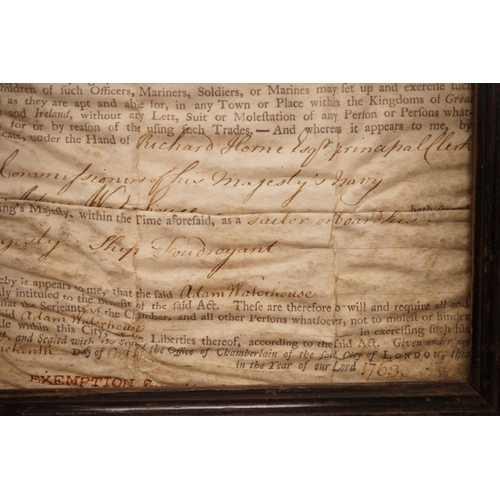 Children of such Officers, Mariners, Soldiers, or Marines may set up and exercise such
as they are apt and able for, in any Town or Place within the Kingdoms of Great
and Ireland, without any Lett, Suit or Molestation of any Person or Persons what-
for or by reason of the using such Trades,—And whereas it appears to me, by
cate, under the Hand of Richard Horne Esqr. principal Clerk
Commissioners of his Majesty's Navy
Waterhouse hath
ing's Majesty, within the Time aforesaid, as a sailor on board his
Majesty's Ship Foudroyant
by it appears to me, that the said Adam Waterhouse
ly intituled to the benefit of the said Act. These are therefore to will and require all and
the Serjeants of the Chamber, and all other Persons whatsoever, not to molest or hinder
said Adam Waterhouse in exercising such his
ade within this City Liberties thereof, according to the said Act. Given under my
and Sealed with the Seal of the Office of Chamberlain of the said City of LONDON, this
Day of in the Year of our Lord 1763
EXEMPTION